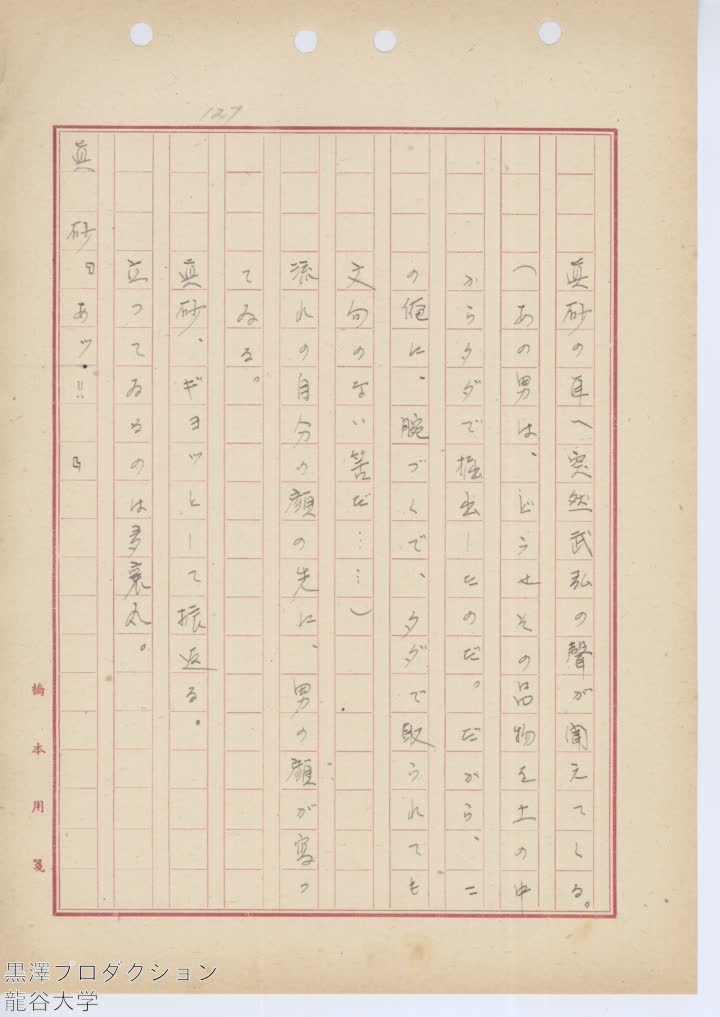 127
眞砂の耳へ突然武弘の聲が聞えてくる。
(あの男は、どうせその品物を土の中
からタダで掘出したのだ。だから、こ
の俺に、腕づくで、タダで取られても
文句のない筈だ……)
流れの自分の顔の先に、男の顔が寫っ
てゐる。
眞砂、ギョッとして振返る。
立つてゐるのは多襄丸。
眞 砂『あツ!!』
橋本用箋
黒澤プロダクション
龍谷大学